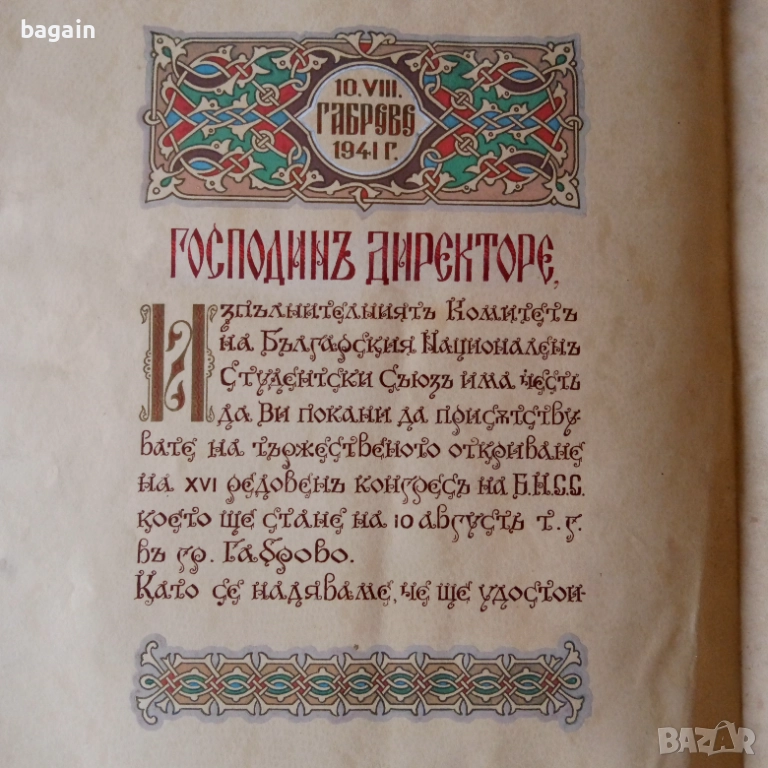 bagain
10.VIII.
ГАБРѢВѢ
1941 Г.
ГОСПОДИНЪ ДИРЕКТОРЕ,
ИЗПЪЛНИТЕЛНИЯТЪ КОМИТЕТЪ
НА БЪЛГАРСКИЯ НАЦИОНАЛЕНЪ
СТУДЕНТСКИ СЪЮЗЪ ИМА ЧЕСТЬ
ДА ВИ ПОКАНИ ДА ПРИСѪТСТВУ-
ВАТЕ НА ТЪРЖЕСТВЕНОТО ОТКРИВАНЕ
НА XVI РЕДОВЕНЪ КОНГРЕСЪ НА Б.Н.С.С.
КОЕТО ЩЕ СТАНЕ НА 10 АВГУСТЪ Т.Г.
ВЪ ГР. ГАБРОВО.
КАТО СЕ НАДЯВАМЕ, ЧЕ ЩЕ УДОСТОИ-
BAZAR